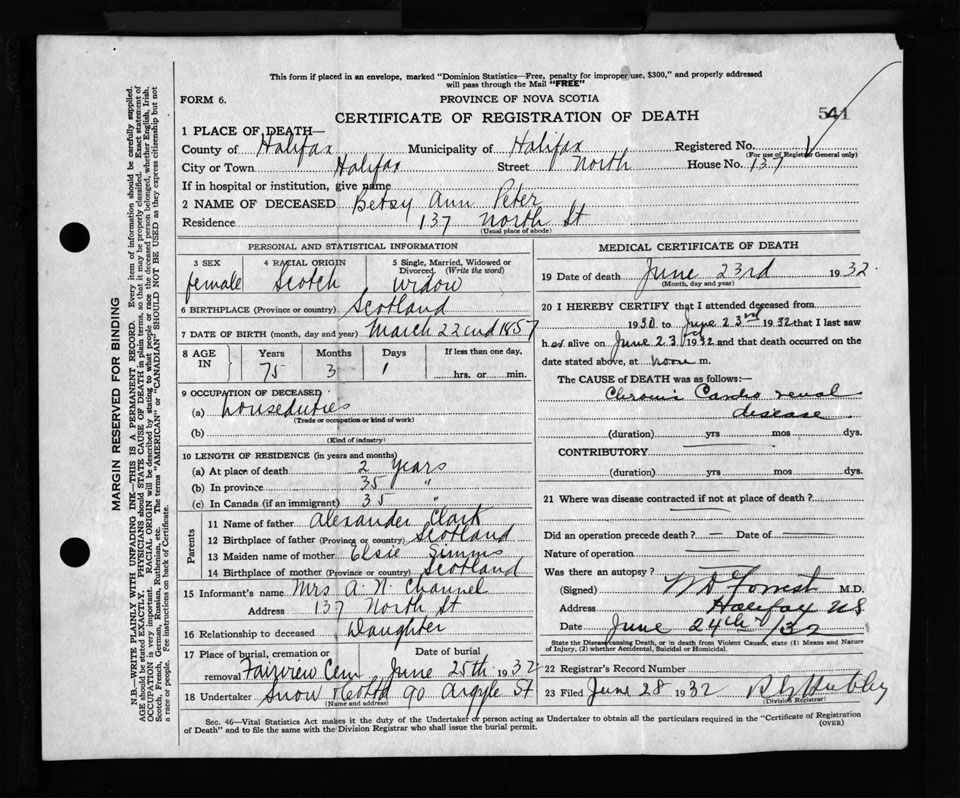 This form if placed in an envelope, marked "Dominion Statistics—Free, penalty for improper use, $300," and properly addressed
will pass through the Mail "FREE"
FORM 6.
PROVINCE OF NOVA SCOTIA
CERTIFICATE OF REGISTRATION OF DEATH
541
1 PLACE OF DEATH—
County of Halifax Municipality of Halifax Registered No.
(For use of Registrar General only)
City or Town Halifax Street North House No. 137
If in hospital or institution, give name
2 NAME OF DECEASED Betsy Ann Peter
Residence 137 North St
(Usual place of abode)
PERSONAL AND STATISTICAL INFORMATION
3 SEX 4 RACIAL ORIGIN 5 Single, Married, Widowed or
Divorced. (Write the word)
female Scotch Widow
6 BIRTHPLACE (Province or country) Scotland
7 DATE OF BIRTH (month, day and year) March 22cnd 1857
8 AGE IN Years Months Days If less than one day,
75 3 1 hrs. or min.
9 OCCUPATION OF DECEASED
(a) Houseduties
(Trade or occupation or kind of work)
(b)
(Kind of industry)
10 LENGTH OF RESIDENCE (in years and months)
(a) At place of death 2 Years
(b) In province 35 "
(c) In Canada (if an immigrant) 35 "
Parents
11 Name of father Alexander Clark
12 Birthplace of father (Province or country) Scotland
13 Maiden name of mother Elsie Simms
14 Birthplace of mother (Province or country) Scotland
15 Informant's name Mrs A. N. Channel
Address 137 North St
16 Relationship to deceased Daughter
17 Place of burial, cremation or Date of burial
removal Fairview Cem June 25th 1932
18 Undertaker Snow 90 Argyle St
(Name and address)
MEDICAL CERTIFICATE OF DEATH
19 Date of death June 23rd 1932
(Month, day and year)
20 I HEREBY CERTIFY that I attended deceased from
1930 to June 23rd 1932 that I last saw
her alive on June 23 1932 and that death occurred on the
date stated above, at noon m.
The CAUSE OF DEATH was as follows:—
Chronic Cardio renal
disease
(duration) yrs mos dys.
CONTRIBUTORY
(duration) yrs mos dys.
21 Where was disease contracted if not at place of death?
Did an operation precede death? — Date of —
Nature of operation
Was there an autopsy?
(Signed) W D Forrest M.D.
Address Halifax NS
Date June 24th /32
State the Disease causing Death, or in death from Violent Causes, state (1) Means and Nature
of Injury, (2) whether Accidental, Suicidal or Homicidal.
22 Registrar's Record Number
23 Filed June 28 1932
(Division Registrar)
Sec. 46—Vital Statistics Act makes it the duty of the Undertaker or person acting as Undertaker to obtain all the particulars required in the "Certificate of Registration
of Death" and to file the same with the Division Registrar who shall issue the burial permit.
(OVER)
MARGIN RESERVED FOR BINDING
N.B.—WRITE PLAINLY WITH UNFADING INK—THIS IS A PERMANENT RECORD. Every item of information should be carefully supplied.
AGE should be stated EXACTLY. PHYSICIANS should STATE CAUSE OF DEATH in plain terms, so that it may be properly classified. Exact statement of
OCCUPATION is very important. RACIAL ORIGIN will be described by stating to what people or race the deceased person belonged, whether English, Irish,
Scotch, French, German, Russian, Ruthenian, etc. The terms "AMERICAN" or "CANADIAN" SHOULD NOT BE USED as they express citizenship but not
a race or people. See instructions on back of Certificate.